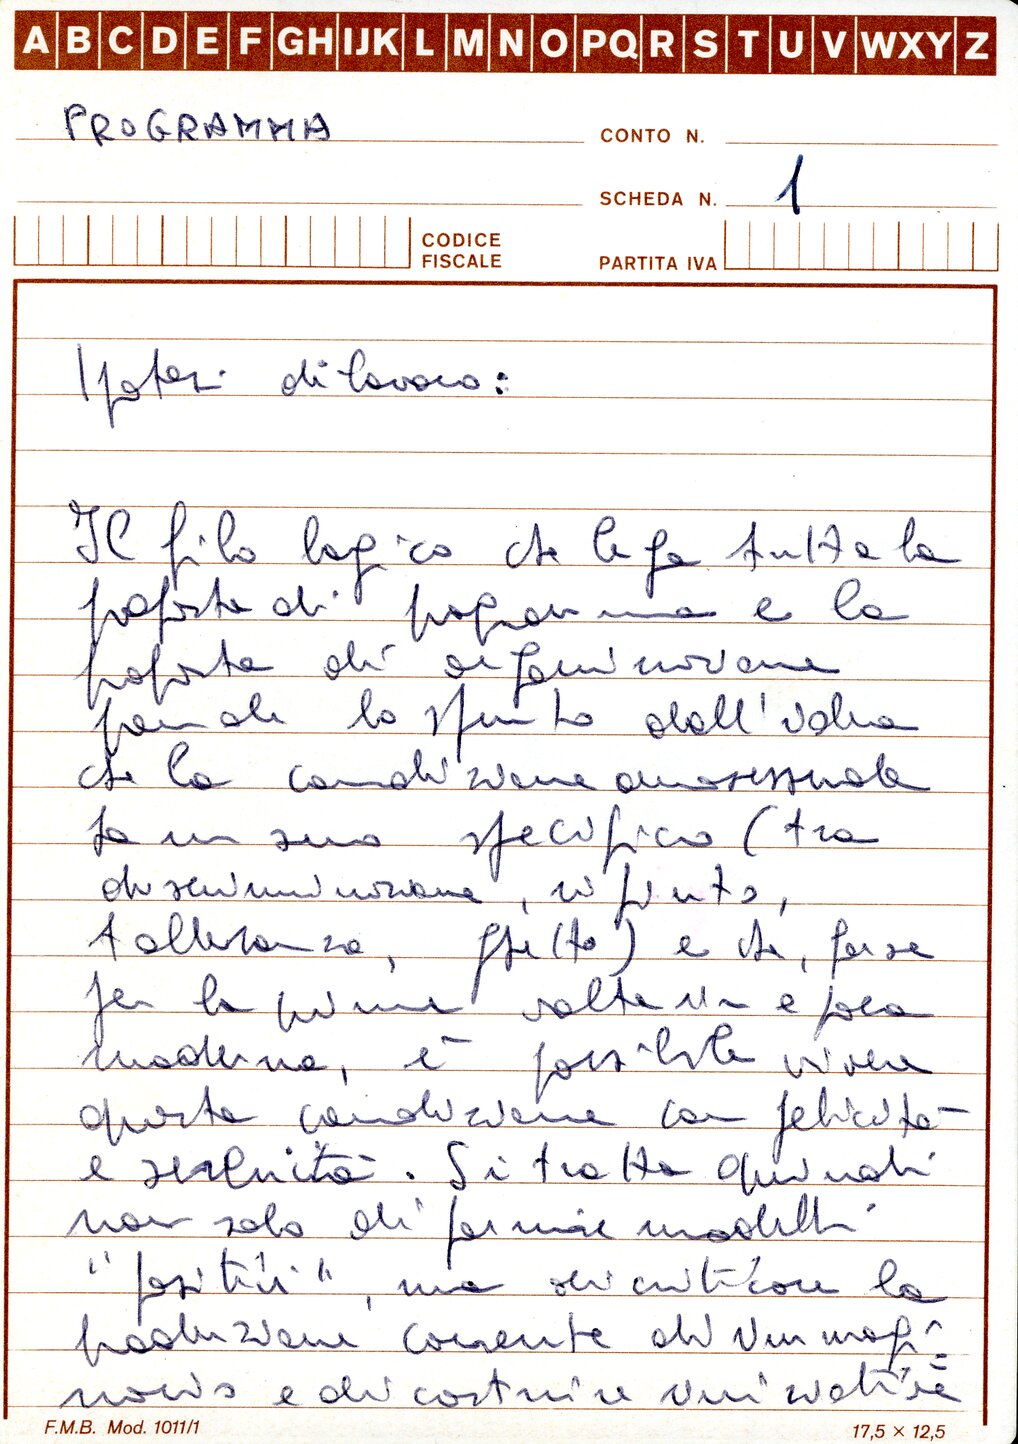 A B C D E F GH IJK L M N O PQ R S T U V WXY Z
PROGRAMMA
CONTO N.
SCHEDA N. 1
CODICE
FISCALE
PARTITA IVA
Ipotesi di lavoro:
Il filo logico che lega tutta la
proposta di programma e la
proposta di organizzazione
prende lo spunto dall'idea
che la condizione omosessuale
ha un suo specifico (tra
discriminazione, rifiuto,
tolleranza, ) e che, forse
per la prima volta in epoca
moderna, è possibile vivere
questa condizione con felicità
e serenità. Si tratta quindi
non solo di fornire modelli
"positivi", ma di criticare la
produzione corrente di immagi=
nario e di costruire iniziative
F.M.B. Mod. 1011/1
17,5 × 12,5